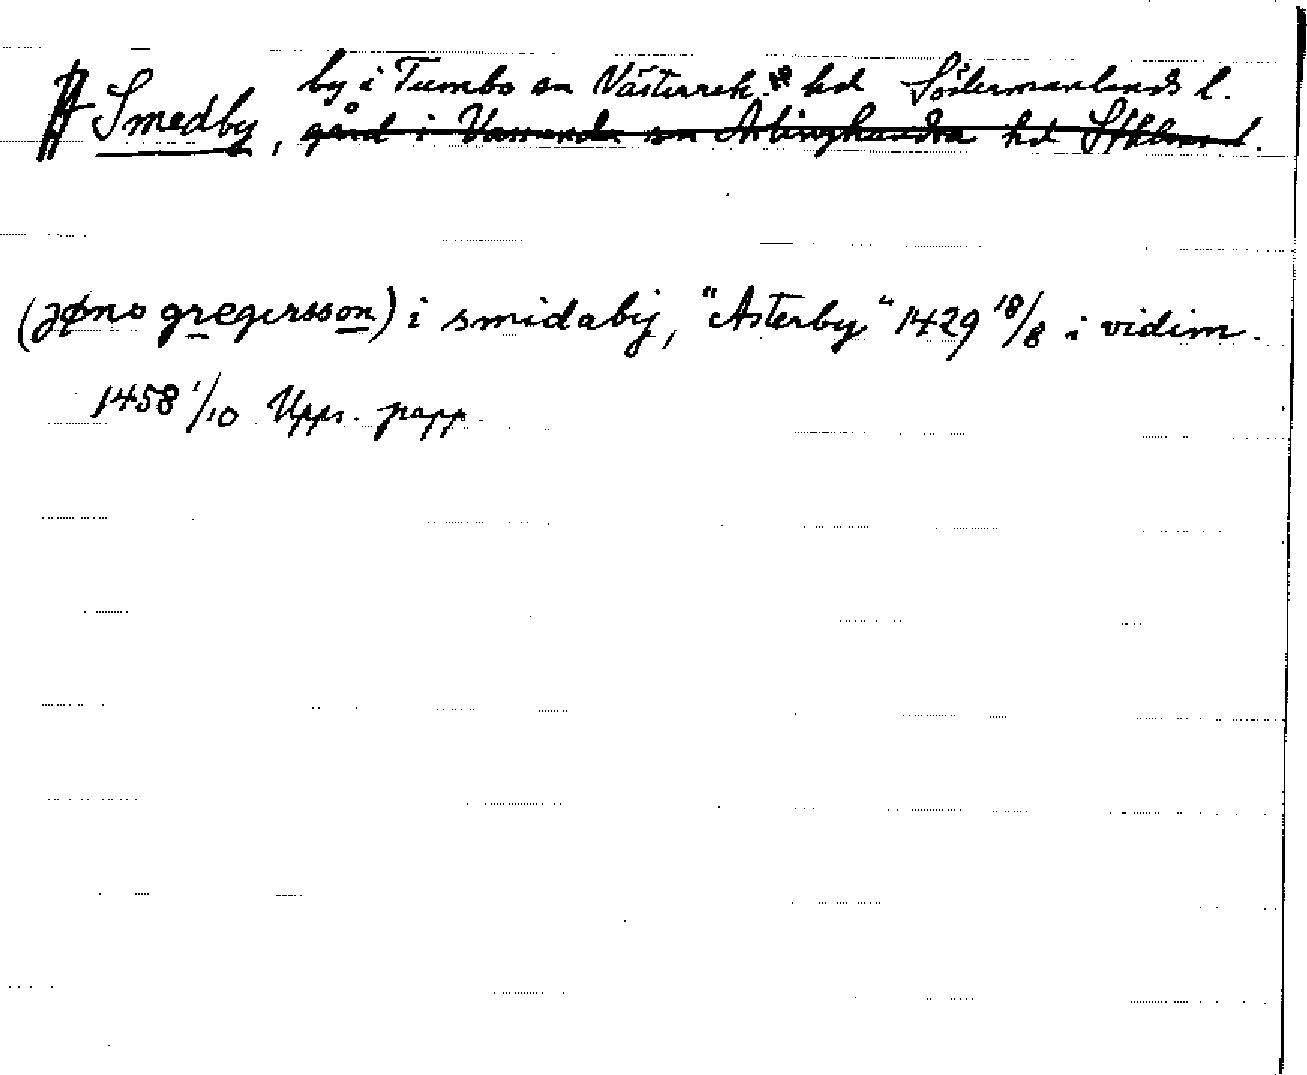 by i Tumbo sn Västerrek. hd Södermanlands l.
Smedby, gård i Vassunda sn Ärlinghundra hd Sthlms l.
(jøno gregersson) i smidabij, "Asterby" 1429 18/8 i vidim.
1458 1/10 Upps. papp